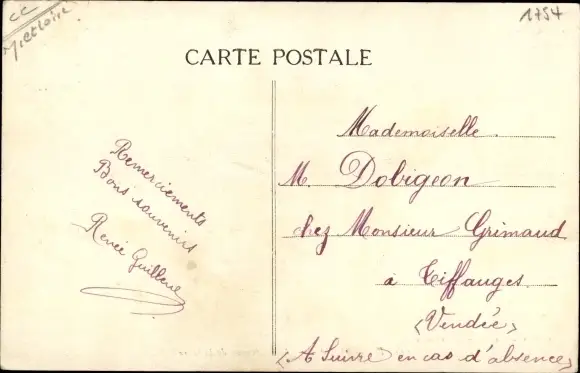 CC
1754
CARTE POSTALE
Remerciements
Bons souvenirs
Renée
Mademoiselle
M. Dobigeon
chez Monsieur Grimaud
à Tiffauges.
(Vendée)
(A Suivre en cas d'absence)